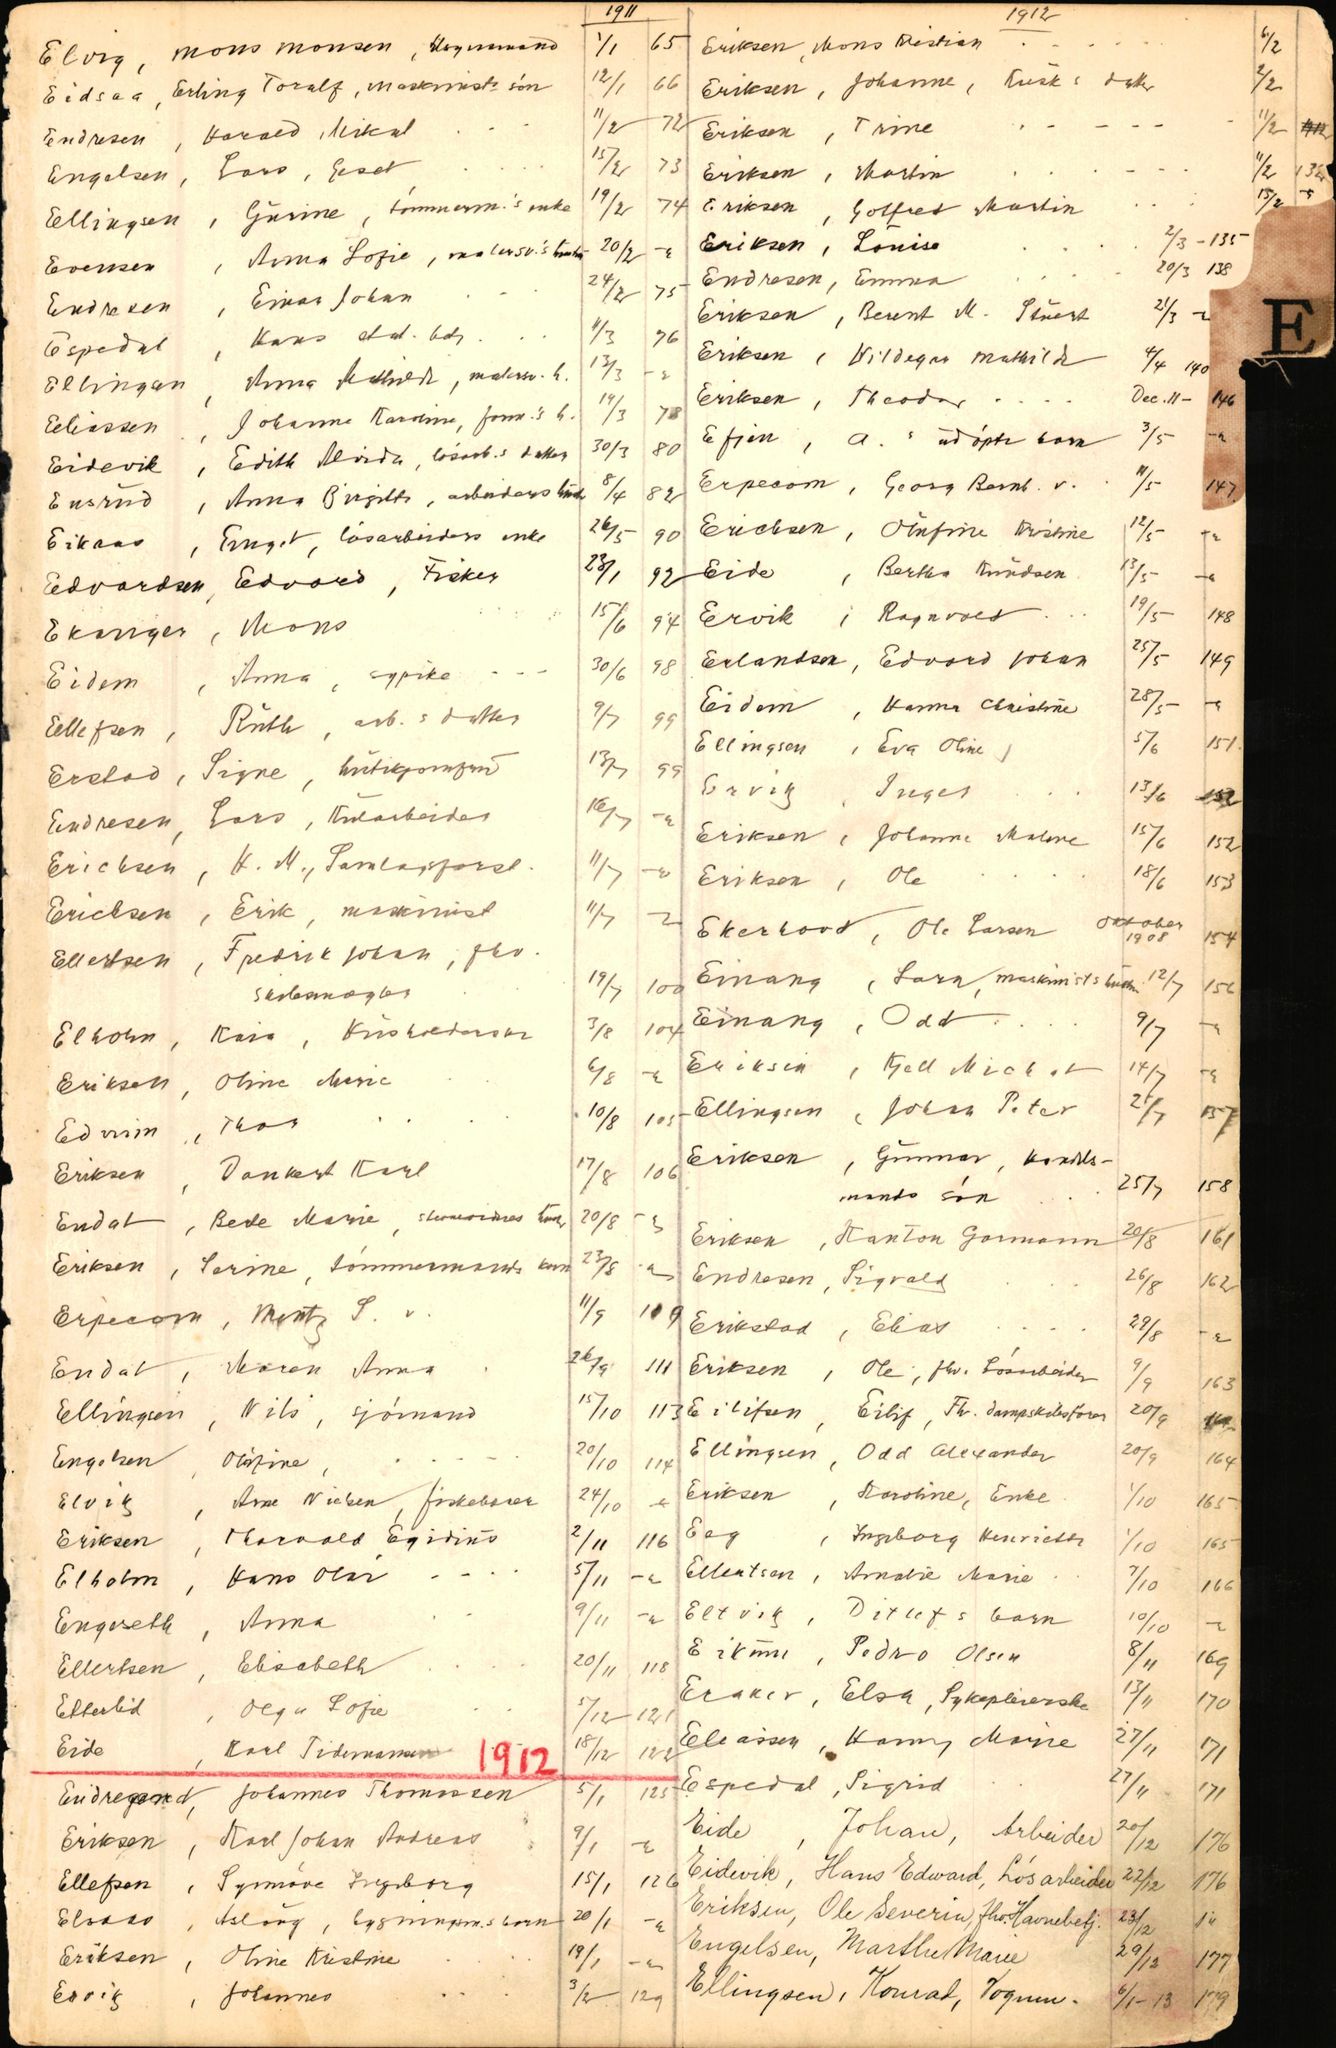 1911
Elvig, Mons Monsen, 1/1 65
Eidsaa, Erling Toralf, maskinists søn 12/1 66
Endresen, Harald Mikal 11/2 72
Engelsen, Lars, 15/2 73
Ellingsen, Gurine, tömmerm.'s enke 19/2 74
Evensen, Anna Sofie, malersv.'s 20/2 -"-
Endresen, Einar Johan 24/2 75
Espedal, Hans 11/3 76
Ellingsen, Anna Mathilde, malersv. h. 13/3 -"-
Eliassen, Johanne Karoline, form.'s h. 19/3 78
Eidevik, Edith Alvida, lösarb.s datter 30/3 80
Ensrud, Anna Birgitte, arbeiders 8/4 82
Eikaas, lösarbeiders enke 26/5 90
Edvardsen, Edvard, Fisker 23/1 92
Ekanger, Mons 15/6 94
Eidem, Anna, sypike 30/6 98
Ellefsen, Ruth, arb.s datter 9/7 99
Erstad, Signe, butikjomfru 13/7 99
Endresen, Lars, Kularbeider 16/7 -"-
Erichsen, H. M., Samlagsforst. 11/7 -"-
Erichsen, Erik, maskinist 11/7 -"-
Ellertsen, Fredrik Johan, fhv.
skibsmægler 19/7 100
Elholm, Kaia, Husholderske 3/8 104
Eriksen, Oline Marie 6/8 -"-
Thor 10/8 105
Eriksen, Dankert Karl 17/8 106
Endal, Marie, 20/8 -"-
Eriksen, Serine, tömmermands 23/8 -"-
Erpecom, Mentz S. v. 11/9 109
Endal, Maren Anna 26/9 111
Ellingsen, Nils, sjömand 15/10 113
Engelsen, Olufine, 20/10 114
Elvig, Arne Nielsen, fiskebærer 24/10 -"-
Eriksen, Tharvald Egidius 2/11 116
Elholm, Hans Olai 5/11 -"-
Engeseth, Anna 9/11 -"-
Ellertsen, Elisabeth 20/11 118
Efterlid, Olga Sofie 5/12 121
Eide, Karl Tidemansen 18/12 122
1912
Johannes Thomassen 5/1 125
Eriksen, Karl Johan Andreas 9/1 -"-
Ellefsen, Synnöve Ingeborg 15/1 126
Elvaas, Aslaug, bygningsm.s barn 20/1 -"-
Eriksen, Oline Kristine 19/1 -"-
Ervig, Johannes 3/2 129
1912
Eriksen, Mons Kristian 6/2
Eriksen, Johanne, Kusk's datter 2/2
Eriksen, Trine 11/2
Eriksen, Martin 11/2 132
Eriksen, Gotfred Martin 15/2 -"-
Eriksen, Louise 2/3 - 135
Endresen, Emma 20/3 138
Eriksen, Berent M. Stuert 21/3 -"-
Eriksen, Hildegar Mathilde 4/4 140
Eriksen, Theodor Dec. 11 - 146
Efjen, A.'s adopt. barn 3/5 -"-
Erpecom, Georg Bernh. v. 11/5 147
Erichsen, Olufine Kristine 12/5 -"-
Eide, Bertha Knudsen 13/5 -"-
Ervik, Ragnvald 19/5 148
Erlandsen, Edvard Johan 25/5 149
Eidem, Hanna Christine 28/5 -"-
Ellingsen, Eva Oline 5/6 151
Ervig, Inger 13/6 152
Eriksen, Johanne Malene 15/6 152
Eriksen, Ole 18/6 153
Ekerhovd, Ole Larsen Oktober 1908 154
Einang, Lara, maskinists hustru 12/7 156
Einang, Odd 9/7 -"-
Eriksen, Kjell Michal 14/7 -"-
Ellingsen, Johan Peter 25/7 157
Eriksen, Gunnar, Handels-
mands sön 25/7 158
Eriksen, Kanton Garmann 20/8 161
Endresen, Sigvald 26/8 162
Erikstad, Elias 29/8 -"-
Eriksen, Ole, fhv. Lösarbeider 9/9 163
Eilifsen, Eilif, Fh. dampskibsförer 20/9
Ellingsen, Odd Alexander 20/9 164
Eriksen, Karoline, Enke 1/10 165
Eeg, Ingeborg Henriette 1/10 165
Ellertsen, Amalie Marie 7/10 166
Eltvig, Ditlefs barn 10/10 -"-
Pedro Olsen 8/11 169
Eraker, Elsa, Sykepleierske 13/11 170
Eliassen, Hanny Marie 27/11 171
Espedal, Sigrid 27/11 171
Eide, Johan, Arbeider 20/12 176
Eidevik, Hans Edward, Lösarbeider 22/12 176
Eriksen, Ole Severin, fhv. Havnebetj. 23/2 "
Engelsen, Marthe Marie 29/12 177
Ellingsen, Konrad, Vognm. 6/1 - 13 179
E